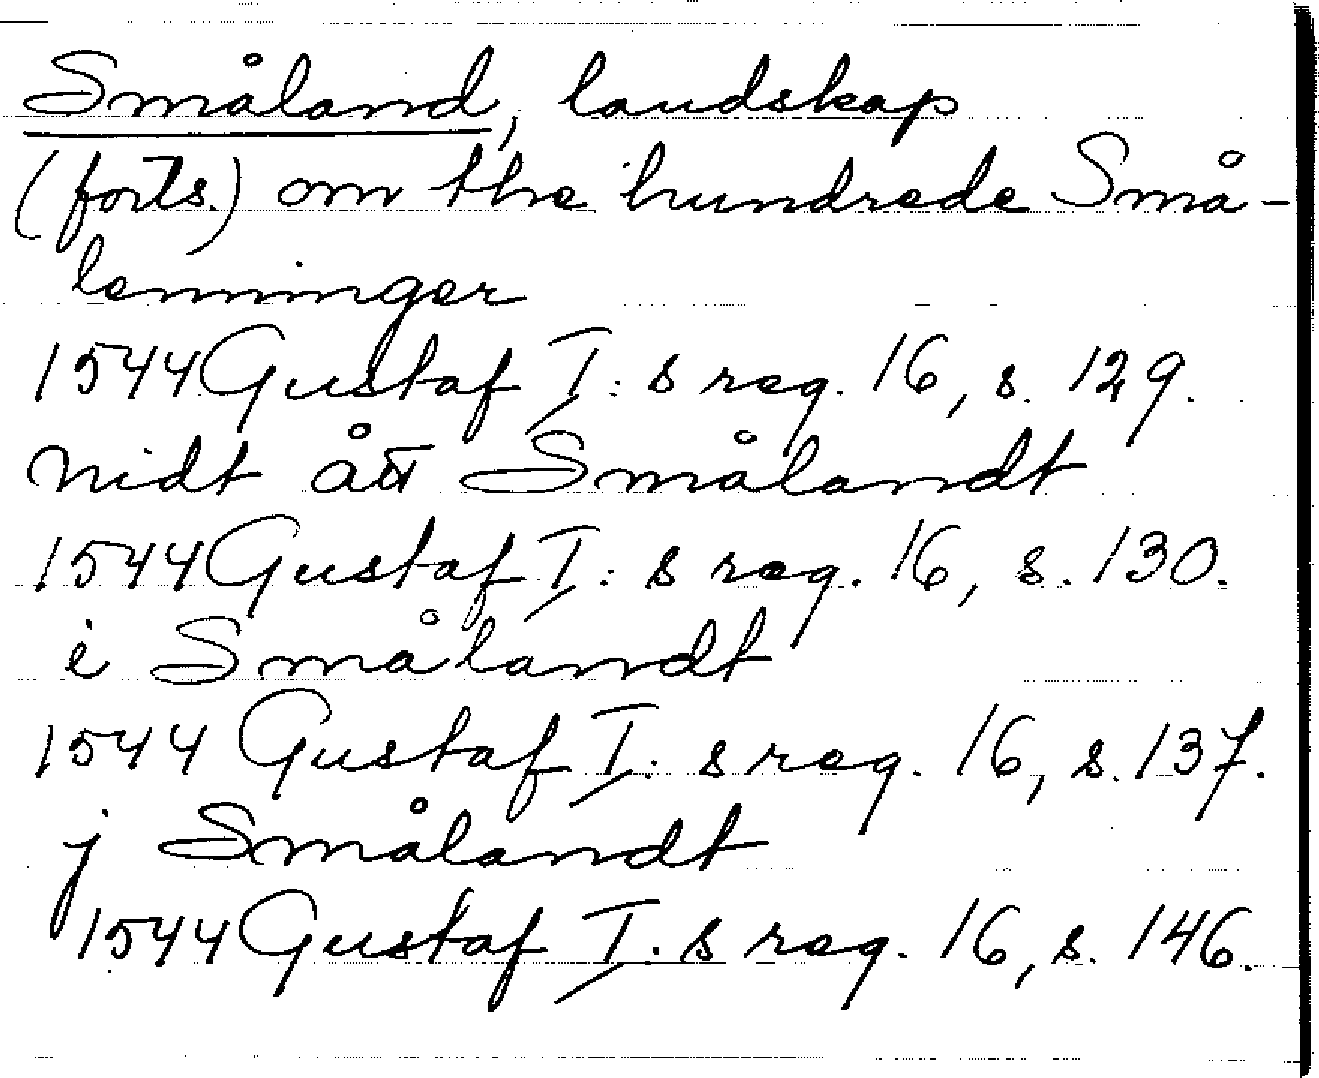 Småland, landskap
(forts.) om the hundrede Små-
lenninger
1544 Gustaf I:s reg. 16, s. 129.
nidtått Smålandt
1544 Gustaf I:s reg. 16, s. 130.
i Smålandt
1544 Gustaf I:s reg. 16, s. 137.
j Smålandt
1544 Gustaf I:s reg. 16, s. 146.